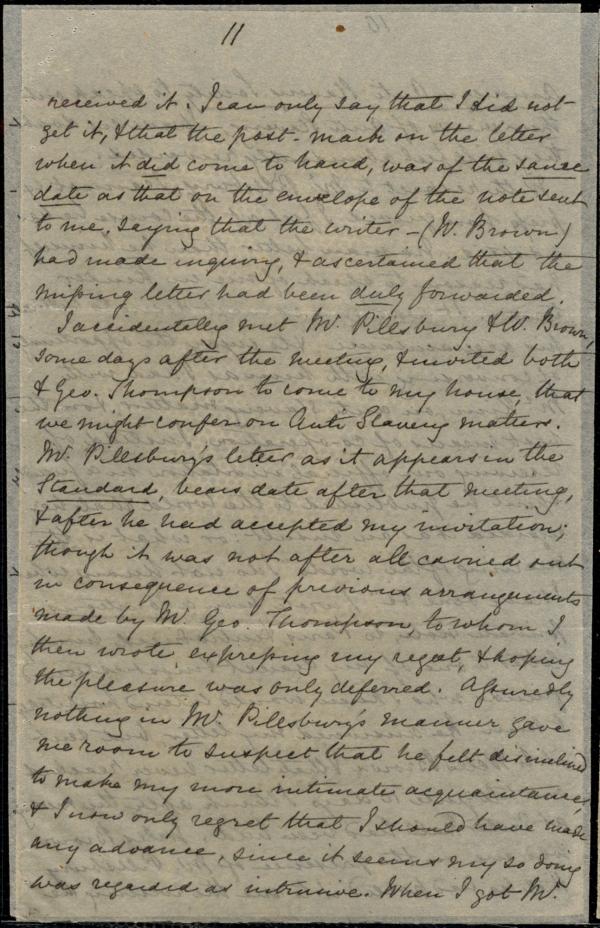 11
received it. I can only say that I did not
get it, & that the post-mark on the letter
when it did come to hand, was of the same
date as that on the envelope of the note sent
to me, saying that the writer – (W. Brown)
had made inquiry, & ascertained that the
missing letter had been duly forwarded.
I accidentally met Mr. Pillsbury & W. Brown,
some days after the meeting, & invited both
& Geo. Thompson to come to my house, that
we might confer on Anti Slavery matters.
Mr. Pillsbury's letter as it appears in the
Standard, bears date after that meeting,
& after he had accepted my invitation;
though it was not after all carried out
in consequence of previous arrangements
made by Mr. Geo. Thompson, to whom I
then wrote, expressing my regret, & hoping
the pleasure was only deferred. Assuredly
nothing in Mr. Pillsbury's manner gave
me room to suspect that he felt disinclined
to make my more intimate acquaintance,
& I now only regret that I should have made
any advance, since it seems my so doing
was regarded as intrusive. When I got Mr.